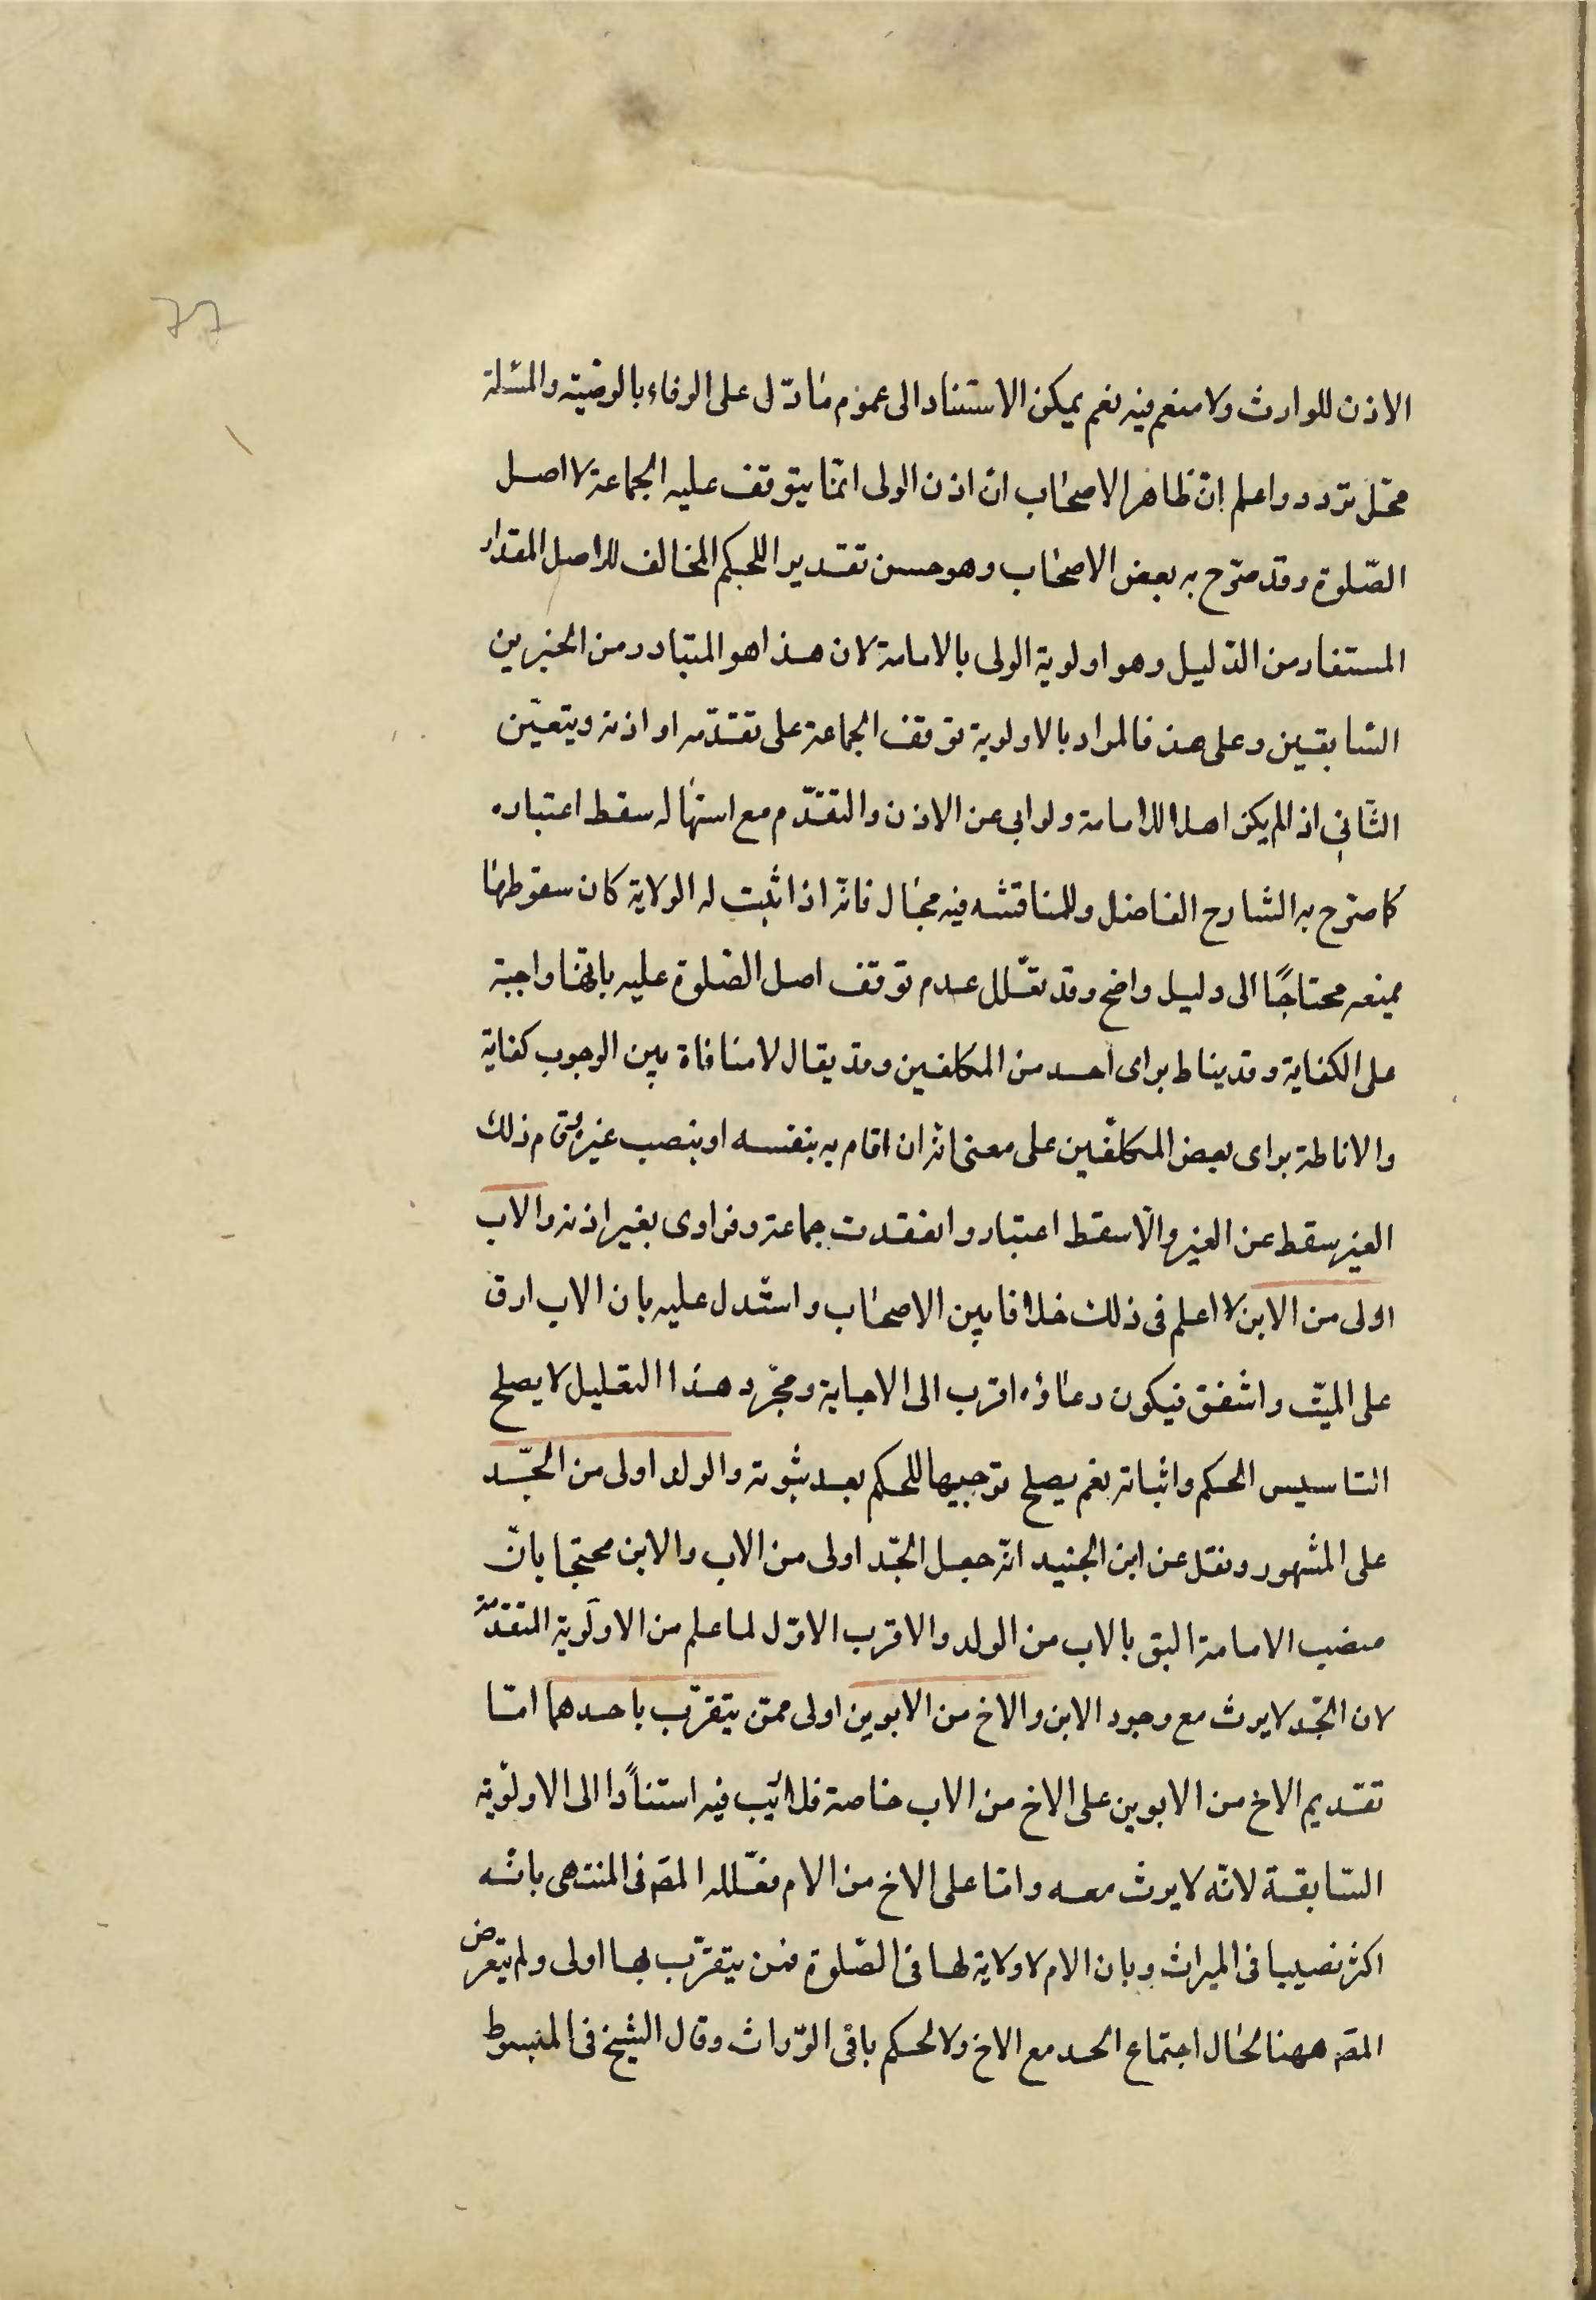 77
الاذن للوارث ولا منعم فيه نعم يمكن الاستناد الى عموم ما دل على الوفاء بالوصية والمسئلة
محل تردد واعلم ان ظاهر الاصحاب ان اذن الولى انما يتوقف عليه الجماعة لا اصل
الصلوة وقد صرح به بعض الاصحاب وهو حسن تقديرا للحكم المخالف للاصل المقدار
المستفاد من الدليل وهو اولوية الولى بالامامة لان هذا هو المتبادر من الخبرين
السابقين وعلى هذ فالمراد بالاولوية توقف الجماعة على تقدمه او اذنه ويتعين
الثانى اذا لم يكن اهلا للامامة ولو ابى عن الاذن والتقدم مع استهاله سقط اعتباره
كما صرح به الشارح الفاضل وللمناقشه فيه مجال فانه اذا ثبت له الولاية كان سقوطها
بمنعه محتاجًا الى دليل واضح وقد تعلل عدم توقف اصل الصلوة عليه بانها واجبة
على الكفاية وقد يناط براى احد من المكلفين وقد يقال لا منافاة بين الوجوب كفاية
والاناطة براى بعض المكلفين على معنى انه ان اقام به بنفسه او بنصب غيره يقام ذلك
الغير سقط عن الغير والا سقط اعتبار وانعقدت جماعة وفراوى بغير اذنه والاب
اولى من الابن لا اعلم فى ذلك خلافا بين الاصحاب واستدل عليه بان الاب ارق
على الميت واشفق فيكون دعاؤه اقرب الى الاجابة ومجرد هذا التعليل لا يصلح
التاسيس الحكم واثباته نعم يصلح توجيها للحكم بعد ثبوته والولد اولى من الجد
على المشهور ونقل عن ابن الجنيد انه جعل الجد اولى من الاب والابن محتجا بان
منصب الامامة اليق بالاب من الولد والاقرب الاول لما علم من الاولوية المتقدمة
لان الجد لا يرث مع وجود الابن والاخ من الابوين اولى ممن يتقرب باحدهما اما
تقديم الاخ من الابوين على الاخ من الاب خاصة فلا ريب فيه استنادًا الى الاولوية
السابقة لانه لا يرث معه واما على الاخ من الام فعلله المص فى المنتهى بانه
اكثر نصيبا فى الميراث وبان الام لا ولاية لها فى الصلوة فمن يتقرب بها اولى ولم يتعرض
المص ههنا لحال اجتماع الحد مع الاخ ولا لحكم باقى الوراث وقال الشيخ فى المبسوط